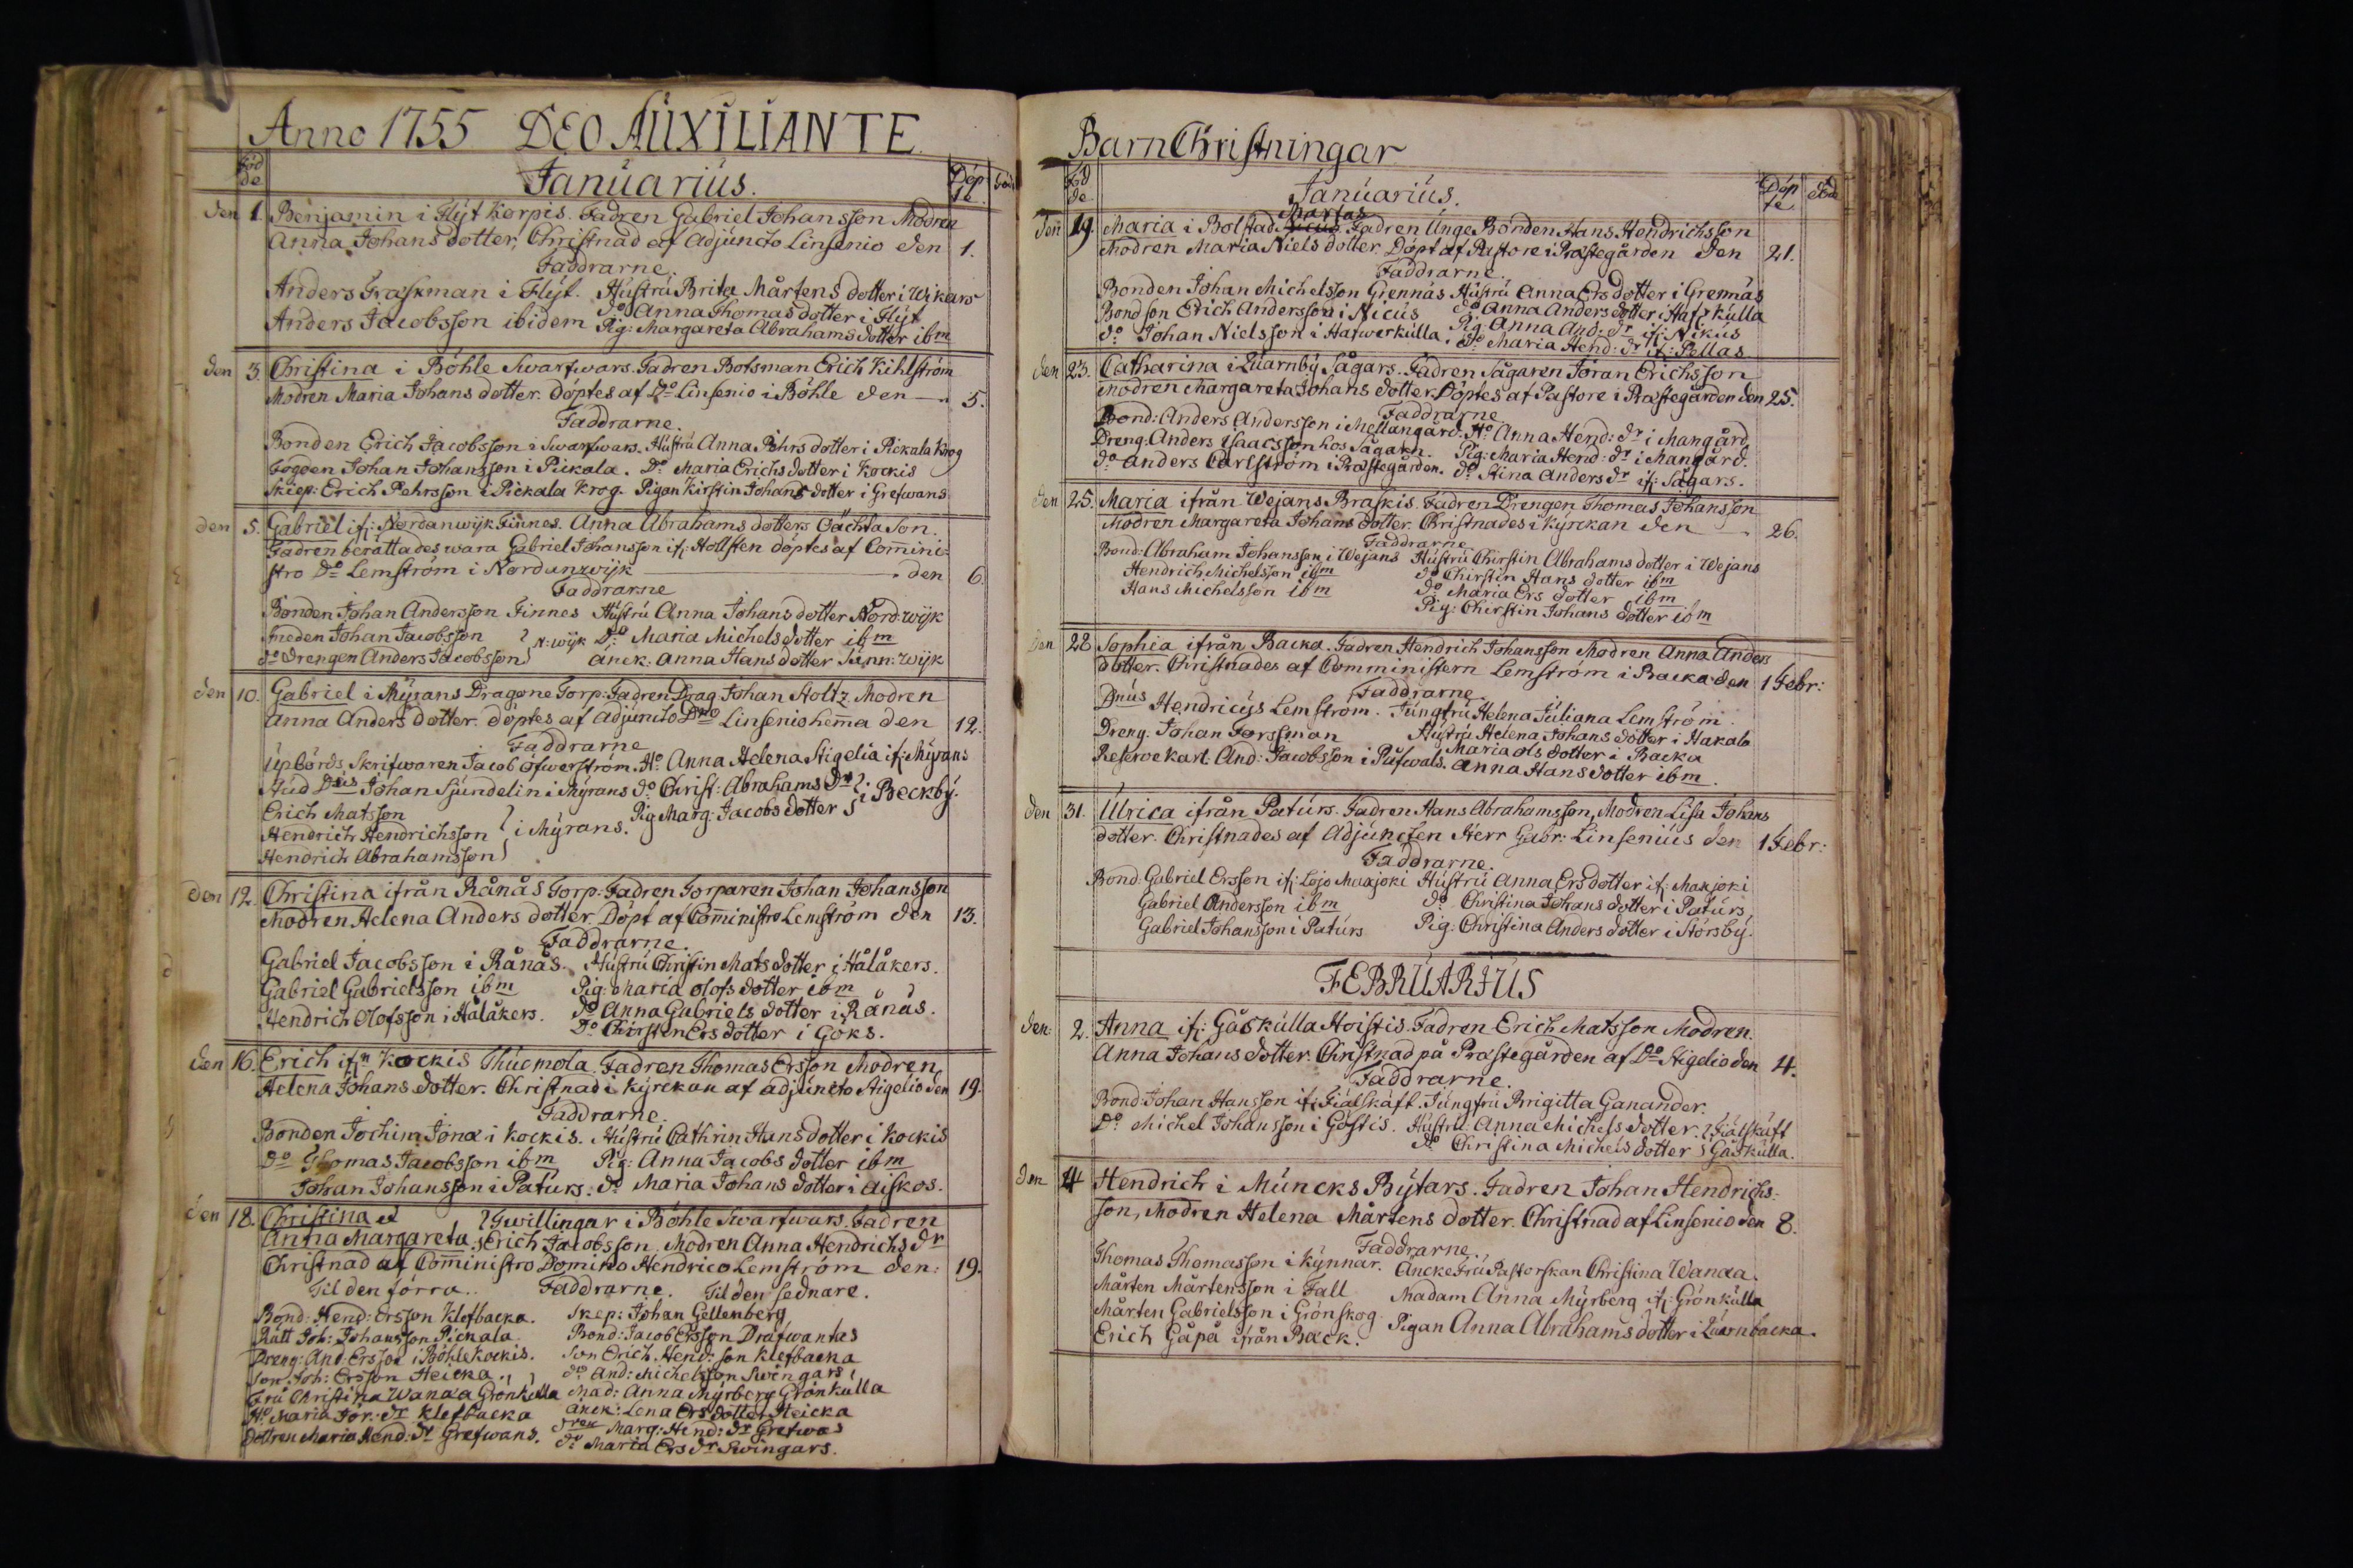 Anno 1755 DEO AUXILIANTE
Föd
de
Januarius.
Döp
te
den 1. Benjamin i Flyt Korpis. Fadren Gabriel Johansson Modren
Anna Johans dotter, Christnad af Adjuncto Linsenio den 1.
Faddrarne.
Anders Fraskman i Flyt. Hustru Brita Mårtens dotter i Wikars
Do Anna Thomas dotter i Flyt
Anders Jacobsson ibidem Pig: Margareta Abrahams dotter ibm
den 3. Christina i Böhle Swartwars. Fadren Botsman Erich Kihlström
Modren Maria Johans dotter. döptes af Do Linsenio i Böhle den 5.
Faddrarne.
Bonden Erich Jacobsson i Swartwars. Hustru Anna Pehrs dotter i Pickala Krog
fogden Johan Johansson i Pickala. Do Maria Erichs dotter i Kockis
Skiep: Erich Pehrsson i Pickala Krog. Pigan Kirstin Johans dotter i Grefwans
den 5. Gabriel if: Nordanwijk Finnes. Anna Abrahams dotters Oächta Son.
Fadren berättades wara Gabriel Johansson if: Hollsten döptes af Commini-
stro Do Lemström i Nordanwijk den 6.
Faddrarne
Bonden Johan Andersson Finnes Hustru Anna Johans dotter Nord:wijk
Smeden Johan Jacobsson N:wijk Do Maria Michels dotter ibm
do Drengen Anders Jacobsson anck: Anna Hans dotter Sunn: wijk
den 10. Gabriel i Myrans Dragone Torp: Fadren Drag Johan Stoltz. Modren
Anna Anders dotter. döptes af Adjuncto Dno Linsenio hema den 12.
Faddrarne
Upbörds Skrifwaren Jacob Öfwerström. Ho Anna Helena Stigelia if: Myrans
Stud Dns Johan Sjundelin i Myrans do Christ: Abrahams Dr i Beckby.
Erich Matsson Pig Marg: Jacobs dotter
Hendrich Hendrichsson i Myrans.
Hendrich Abrahamsson
den 12. Christina ifrån Rånås Torp: Fadren Torparen Johan Johansson
Modren Helena Anders dotter. Döpt af Coministro Lemström den 13.
Faddrarne.
Gabriel Jacobsson i Rånås. Hustru Christin Mats dotter i Hålåkers.
Gabriel Gabrielsson ibm Pig: Maria Olofs dotter ibm
Hendrich Olofsson i Hålåkers. do Anna Gabriels dotter i Rånås.
Do Chirstin Ers dotter i Göks.
den 16. Erich ifn Kockis Thuemola. Fadren Thomas Ersson Modren
Helena Johans dotter. Christnad i Kyrckan af adjuncto Stigelio den 19.
Faddrarne.
Bonden Jochim Jöna i Kockis. Hustru Cathrin Hans dotter i Kockis
Do Thomas Jacobsson ibm Pig: Anna Jacobs dotter ibm
Johan Johansson i Paturs. do Maria Johans dotter i Aiskos.
den 18. Christina et Twillingar i Böhle Swartwars. Fadren
Anna Margareta Erich Jacobsson. Modren Anna Hendrichs dr
Christnad af Coministro Domino Hendrico Lemström den: 19.
Til den förra. Faddrarne. Til den sednare.
Bond: Hend: Ersson Klefbacka. Skep: Johan Gellenberg
Rått Joh: Johansson Pickala. Bond: Jacob Ersson Dräfwantas
Dreng: And: Ersson i Böhle Kockis. Son Erich Hend:son Klefbacka
Son Joh: Ersson Heicka. do And: Michelsson Swingars
Fru Christina Wanaa Grönkulla Mad: Anna Myrberg Grönkulla
Ho Maria Jör: dr Klefbacka anck: Lena Ers dotter Heicka
Dottren Maria Hend: dr Grefwans. Marg: Hend: dr Grefwas
do Maria Ers dr Swingars.
Barn Christningar
Föd
de
Januarius.
Döp
te
död
den 19 Maria i Bolstad Martas Fadren Unge Bonden Hans Hendrichsson
Modren Maria Niels dotter. Döpt af Pastore i Prästegården den 21.
Faddrarne.
Bonden Johan Michelsson Grennäs Hustru Anna Ers dotter i Grennäs
Bondson Erich Andersson i Nicus do Anna Anders dotter i Haf:kulla
do Johan Nielsson i Hafwerkulla. Pig. Anna And: dr if: Nikus
do Maria Hend: dr if: Pellas
den 23. Catharina i Quarnby Sågars. Fadren Sågaren Jöran Erichsson
modren Margareta Johans dotter. Döptes af Pastore i Prästegården den 25.
Faddrarne
Bond: Anders Andersson i Mellangård. Ho Anna Hend: dr i Mangård
Dreng: Anders Isaacsson hos Sågarn. Pig: Maria Hend: dr i Mangård.
do Anders Carlström i Prästegården. do Stina Anders dr if: Sågars.
den 25. Maria ifrån Wejans Braskis. Fadren Drengen Thomas Johansson
Modren Margareta Johans dotter. Christnades i Kyrckan den 26.
Faddrarne
Bond: Abraham Johansson i Wejans Hustru Chirstin Abrahams dotter i Wejans
Hendrich Michelsson ibm do Chirstin Hans dotter ibm
Hans Michelsson ibm do Maria Ers dotter ibm
Pig: Chirstin Johans dotter ibm
den 28 Sophia ifrån Backa. Fadren Hendrich Johansson Modren Anna Anders
dotter. Christnades af Comministern Lemström i Backa den 1 Febr:
Faddrarne.
Dnus Hendricus Lemström. Jungfru Helena Juliana Lemström.
Dreng. Johan Forssman Hustru Helena Johans dotter i Hakala
Maria Ols dotter i Backa
Reservekarl And: Jacobsson i Pufwals. Anna Hans dotter ibm.
den 31. Ulrica ifrån Paturs. Fadren Hans Abrahamsson, Modren Lisa Johans
dotter. Christnades af Adjuncten Herr Gabr: Linsenius den 1 Febr:
Faddrarne.
Bond. Gabriel Ersson if: Lojo Maxjoki Hustru Anna Ers dotter if: Maxjoki
Gabriel Andersson ibm do Christina Johans dotter i Paturs,
Gabriel Johansson i Paturs Pig: Christina Anders dotter i Störsby.
FEBRUARIUS
den 2. Anna if: Gåskulla Hoistis. Fadren Erich Matsson Modren.
Anna Johans dotter. Christnad på Prästegården af Do Stigelio den 4.
Faddrarne.
Bond Johan Hansson if: Fiälskäft. Jungfru Brigitta Ganander.
Do Michel Johansson i Göstis. Hustru Anna Michels dotter. Fiälskäft
do Christina Michels dotter Gåskulla.
den 4 Hendrich i Muncks Bytars. Fadren Johan Hendrichs-
son, Modren Helena Mårtens dotter. Christnad af Linsenio den 8.
Faddrarne.
Thomas Thomasson i Kynnar. Äncke Fru Pastorskan Christina Wanaa.
Mårten Mårtensson i Fall Madam Anna Myrberg if: Grönkulla
Mårten Gabrielsson i Grönskog. Pigan Anna Abrahams dotter i Quarnbacka.
Erich Gåpå ifrån Back.